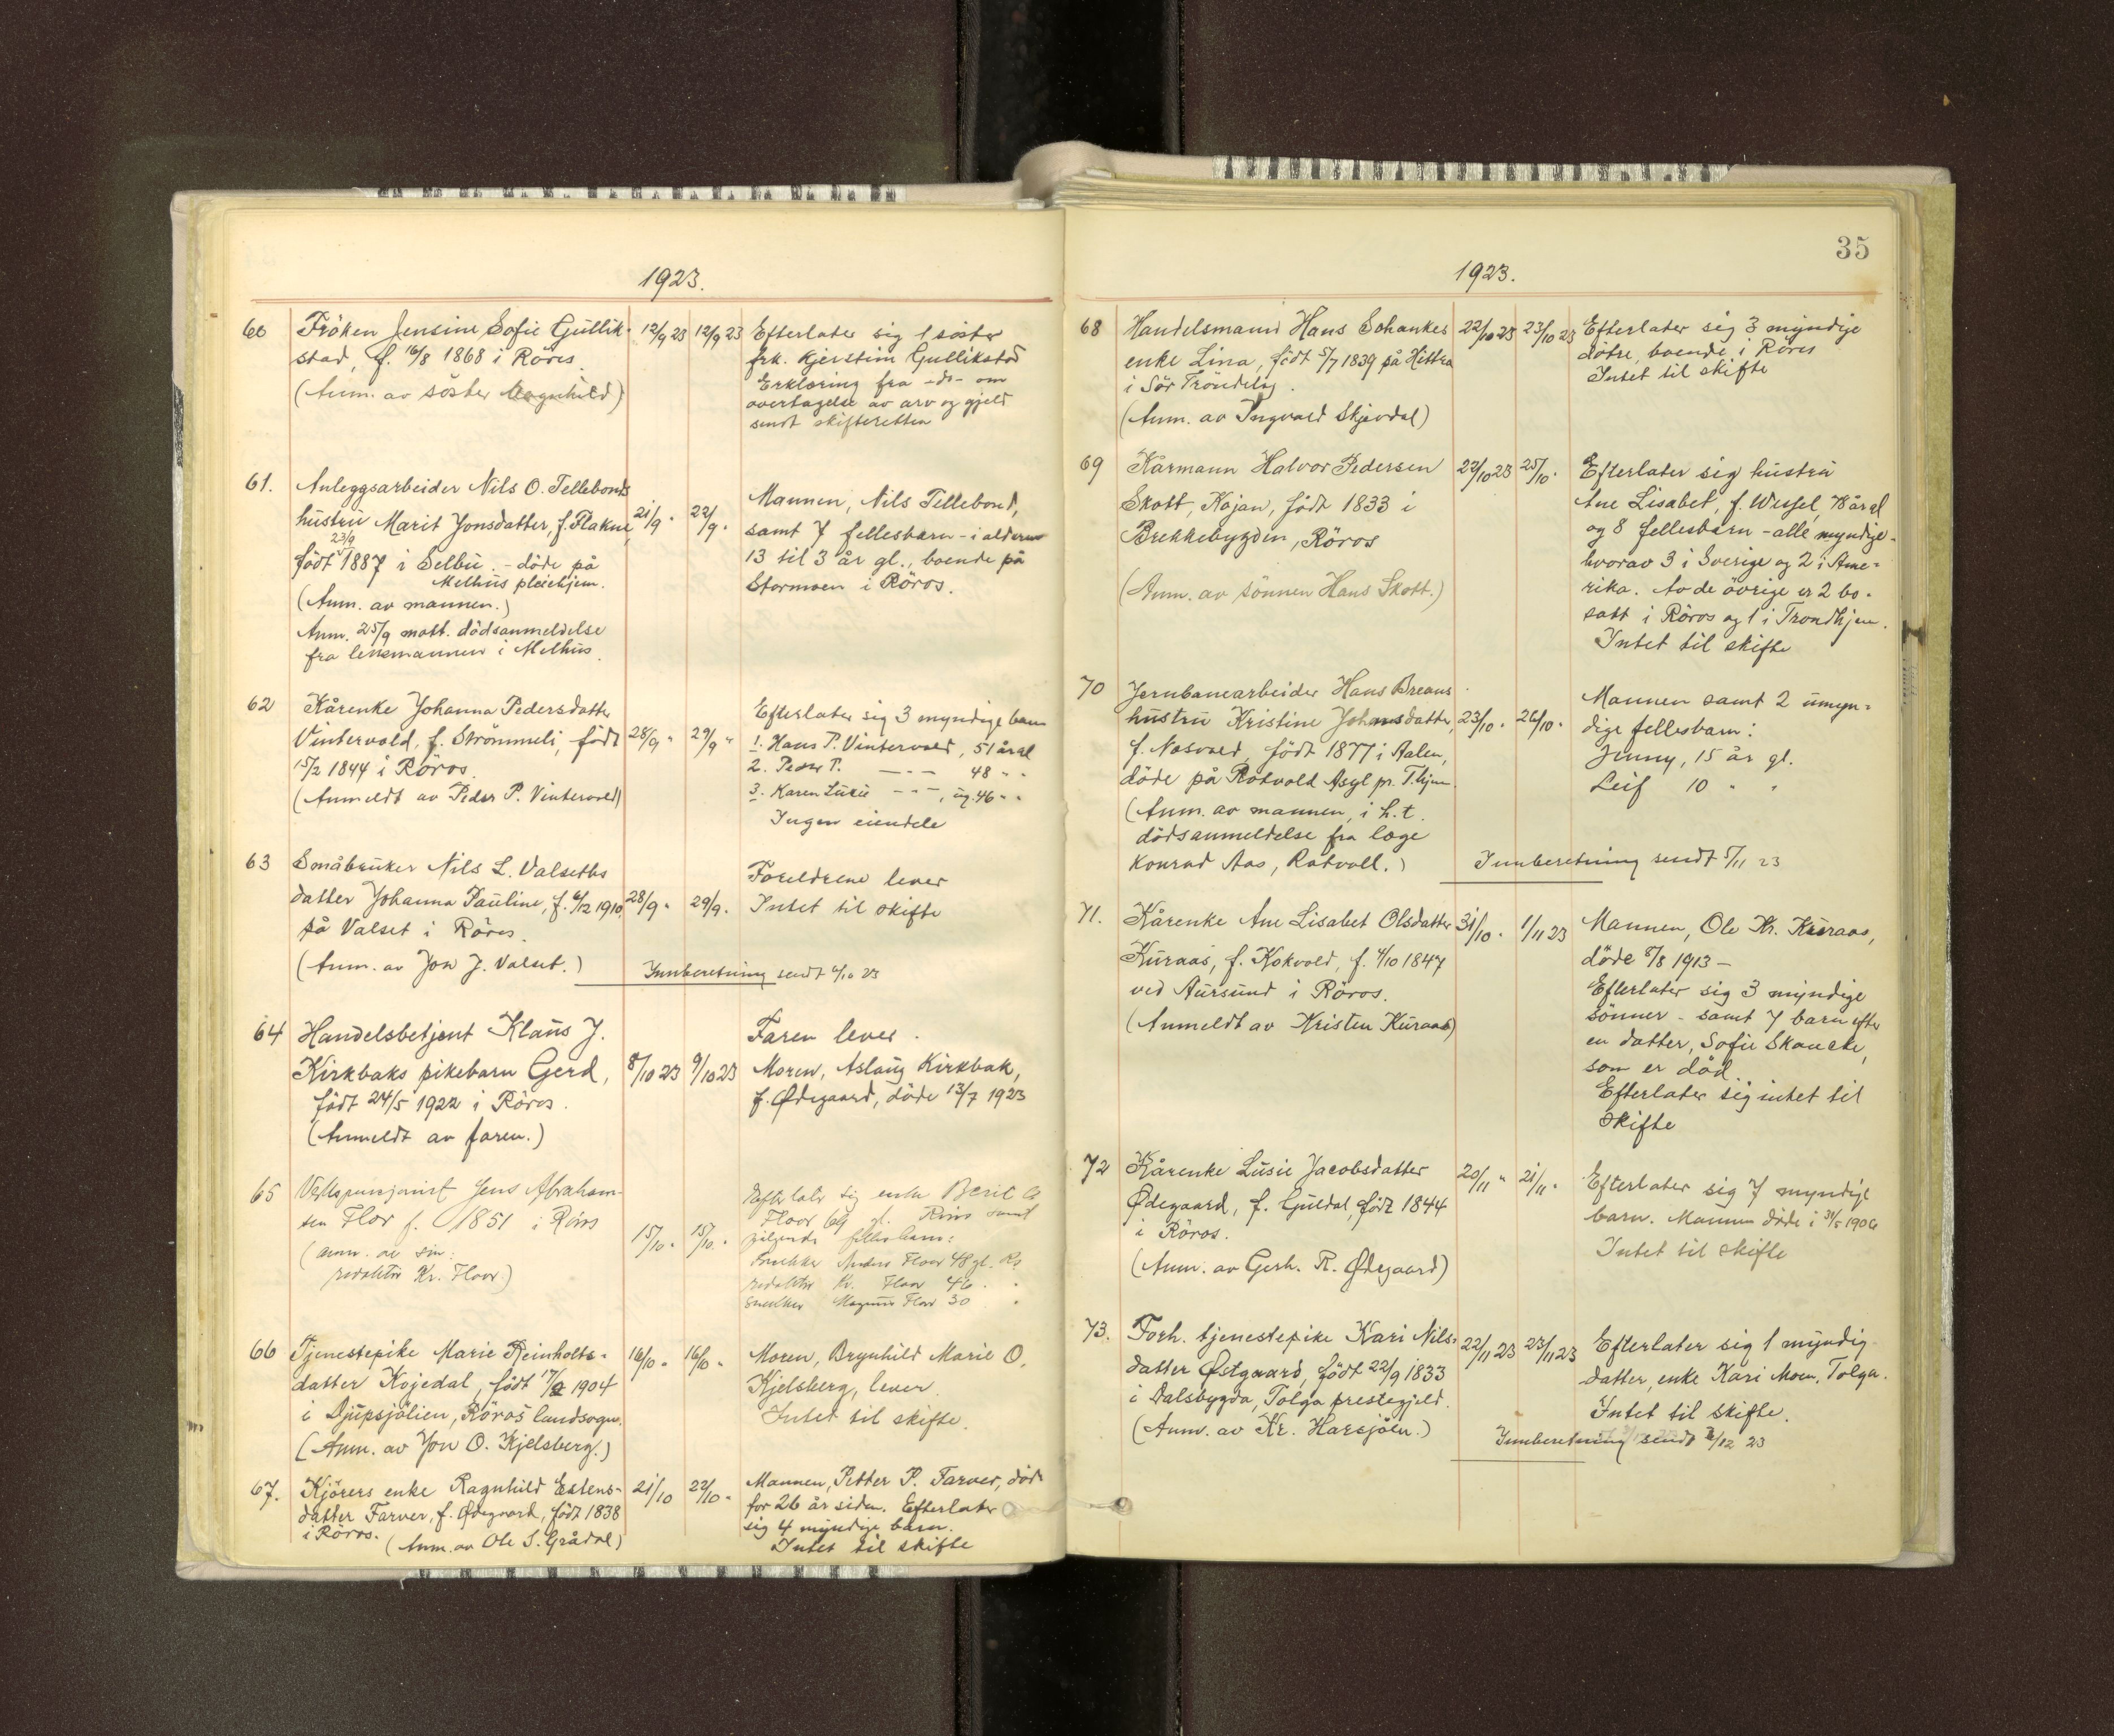 1923.
60 Fröken Jensine Sofie Gullik- 12/9 23 12/9 23 Efterlater sig 1 söster
stad, f. 16/8 1868 i Röros. frk. Kjerstine Gullikstad
(Anm. av söster Ragnhild) Erklæring fra -do- om
overtagelse av arv og gjeld
sendt skifteretten
61. Anleggsarbeider Nils O. Tellebonds
hustru Marit Jonsdatter, f. Flakne, 21/9 " 22/9 " Mannen, Nils Tellebond,
født 23/9 1887 i Selbu. - döde på samt 7 fellesbarn - i alderen
Melhus pleiehjem. 13 til 3 år gl., boende på
(Anm. av mannen.) Stormoen i Röros.
Anm. 25/9 mott. dödsanmeldelse
fra lensmannen i Melhus.
62 Kårenke Johanna Pedersdatter Efterlater sig 3 myndige barn
Vintervold, f. Strömmeli, født 28/9 " 29/9 " 1. Hans P. Vintervold, 51 år gl
15/2 1844 i Röros. 2. Peder P. — " — 48 " "
(Anmeldt av Peder P. Vintervold) 3. Karen Lusie — " —, ug. 46 " "
Ingen eiendele
63 Småbruker Nils L. Valseths Foreldrene lever
datter Johanna Pauline, f. 6/12 1910 28/9 " 29/9 " Intet til skifte
på Valset i Röros.
(Anm. av Jon J. Valset.) Innberetning sendt 4/10 23
64 Handelsbetjent Klaus J. Faren lever.
Kirkbaks pikebarn Gerd, 8/10 23 9/10 23 Moren, Aslaug Kirkbak,
født 24/5 1922 i Röros. f. Ødegaard, döde 13/7 1923
(Anmeldt av faren.)
65 Verkspensjonist Jens Abraham- Efterlater sig enke Berit
sen Flor f. 1851 i Röros 15/10 " 15/10 " Floor 69 gl. Röros samt
(anm. av sön: følgende fellesbarn:
redaktör Kr. Floor) Anders Floor 48 gl. Rs
redaktör Kr. Floor 46 "
snekker Magnus Floor 30 "
66 Tjenestepike Marie Reinholts- 16/10 " 16/10 " Moren, Brynhild Marie O.
datter Kojedal, født 17/2 1904 Kjelsberg, lever.
i Djupsjölien, Röros landsogn. Intet til skifte.
(Anm. av Jon O. Kjelsberg.)
67. Kjörers enke Ragnhild Estens- 21/10 22/10 " Mannen, Petter P. Farver, döde
datter Farver, f. Ødegaard, født 1838 for 26 år siden. Efterlater
i Röros. (Anm. av Ole S. Grådal) sig 4 myndige barn.
Intet til skifte
35
1923.
68 Handelsmann Hans Schankes 22/10 23 23/10 23 Efterlater sig 3 myndige
enke Lina, födt 5/7 1839 på Hittra dötre, boende i Röros
i Sör Tröndelag. Intet til skifte
(Anm. av Ingvald Skjevdal)
69 Kårmann Halvor Pedersen 22/10 23 25/10 " Efterlater sig hustru
Skott, Kojan, født 1833 i Ane Lisabet, f. Wessel, 78 år gl
Brekkebygden, Röros og 8 fellesbarn - alle myndige -
(Anm. av sönnen Hans Skott.) hvorav 3 i Sverige og 2 i Ame-
rika. Av de övrige er 2 bo-
satt i Röros og 1 i Trondhjem.
Intet til skifte
70 Jernbanearbeider Hans Breans Mannen samt 2 umyn-
hustru Kristine Johansdatter, 23/10 " 26/10 " dige fellesbarn:
f. Nosvold, födt 1877 i Aalen, Jenny, 15 år gl.
döde på Rotvold Asyl pr. T.hjem. Leif 10 " "
(Anm. av mannen, i h.t.
dödsanmeldelse fra læge
Konrad Aas, Rotvoll.) Innberetning sendt 5/11 23
71. Kårenke Ane Lisabet Olsdatter 31/10 " 1/11 23 Mannen, Ole Kr. Kuraas,
Kuraas, f. Kokvold, f. 4/10 1847 döde 8/8 1913 -
ved Aursund i Röros. Efterlater sig 3 myndige
(Anmeldt av Kristen Kuraas) sönner - samt 7 barn efter
en datter, Sofie Skancke,
som er död.
Efterlater sig intet til
skifte
72 Kårenke Lusie Jacobsdatter 20/11 " 21/11 " Efterlater sig 7 myndige
Ødegaard, f. Guldal, födt 1844 barn. Mannen döde i 31/5 1906
i Röros. Intet til skifte
(Anm. av Gerh. R. Ødegaard)
73. Forh. tjenestepike Kari Nils- 22/11 23 23/11 23 Efterlater sig 1 myndig
datter Østgaard, födt 22/9 1833 datter, enke Kari Moen, Tolga.
i Dalsbygda, Tolga prestegjeld. Intet til skifte.
(Anm. av Kr. Harsjöen.) Innberetning sendt 3/12 23